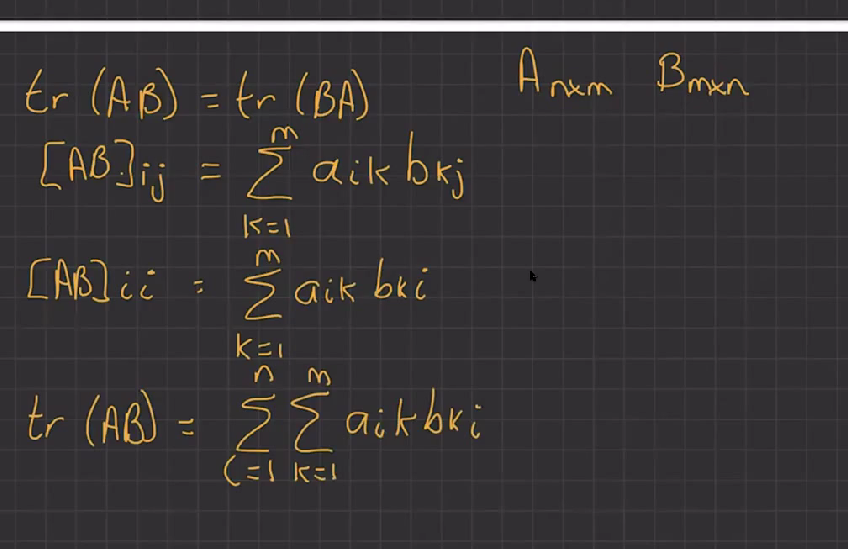 tr (AB) = tr (BA) A_{n×m} B_{m×n}
[AB]_{ij} = \sum_{k=1}^{m} a_{ik} b_{kj}
[AB]_{ii} = \sum_{k=1}^{m} a_{ik} b_{ki}
tr (AB) = \sum_{i=1}^{n} \sum_{k=1}^{m} a_{ik} b_{ki}